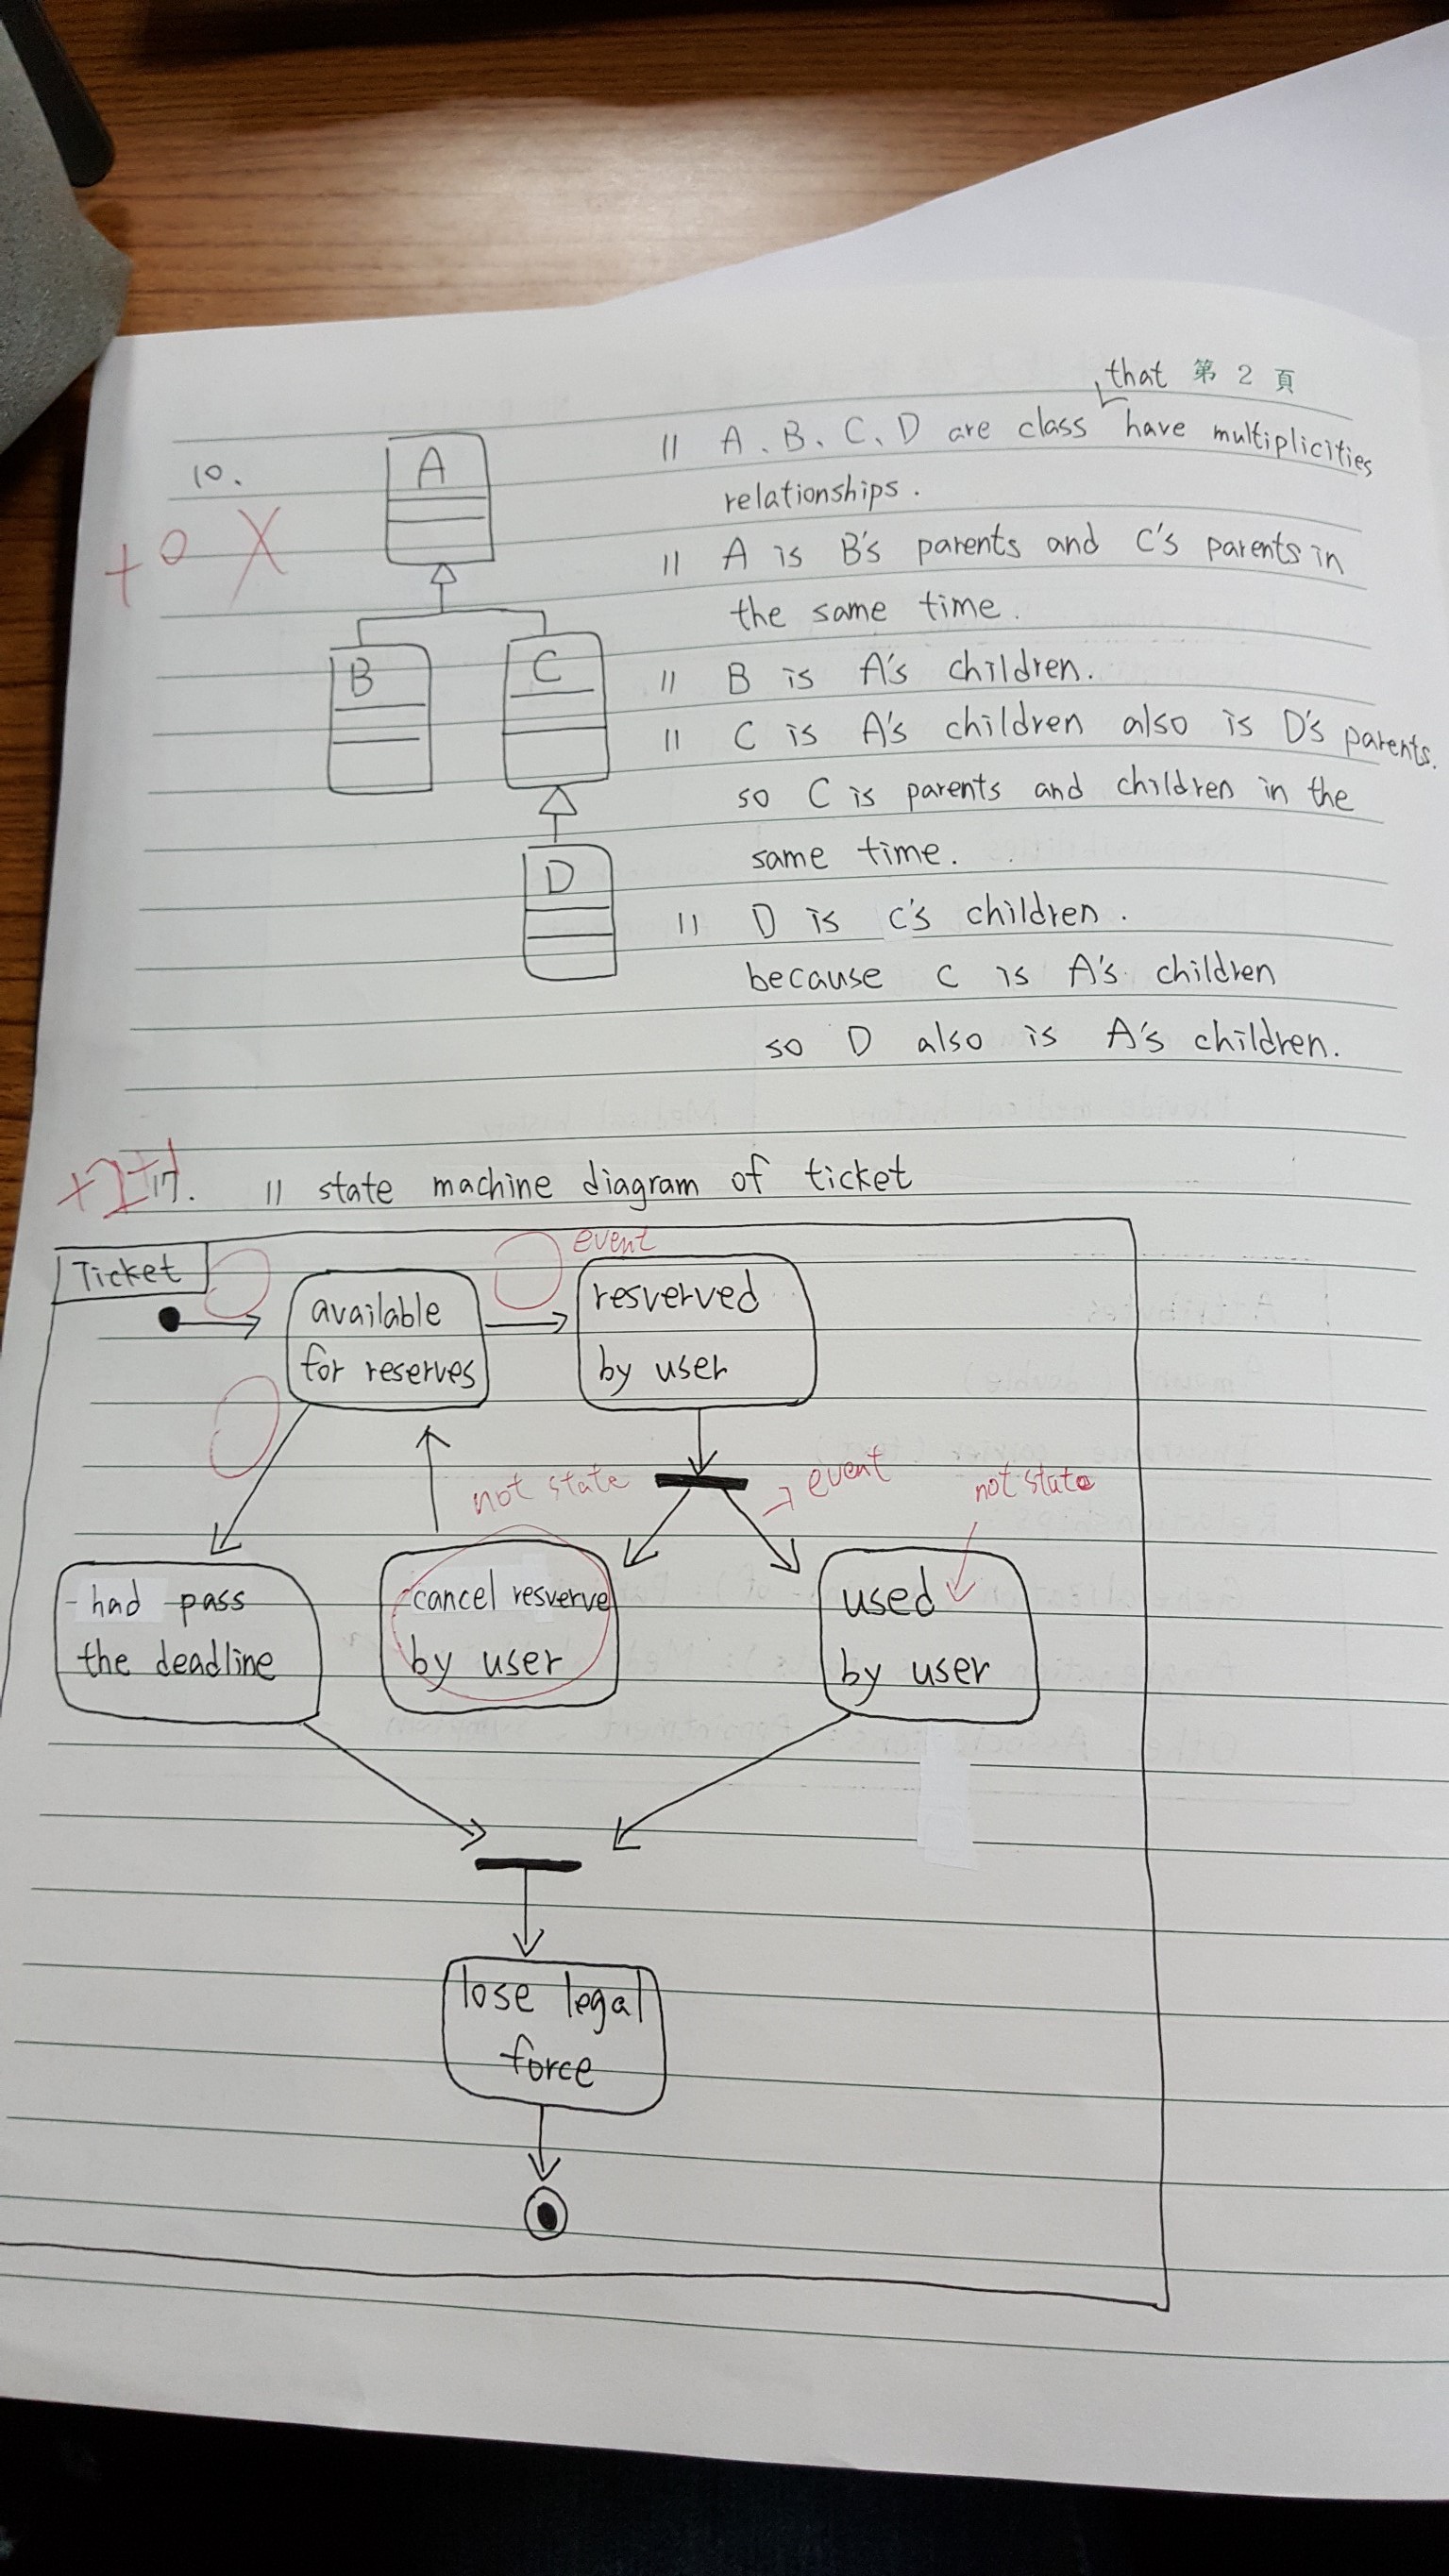 that 第 2 頁
10.
+0 X
A
B
C
D
// A、B、C、D are class have multiplicities
relationships.
// A is B's parents and C's parents in
the same time.
// B is A's children.
// C is A's children also is D's parents.
so C is parents and children in the
same time.
// D is C's children.
because C is A's children
so D also is A's children.
17. // state machine diagram of ticket
Ticket
event
available
for reserves
resverved
by user
not state
event
not state
had pass
the deadline
cancel resverve
by user
used
by user
lose legal
force